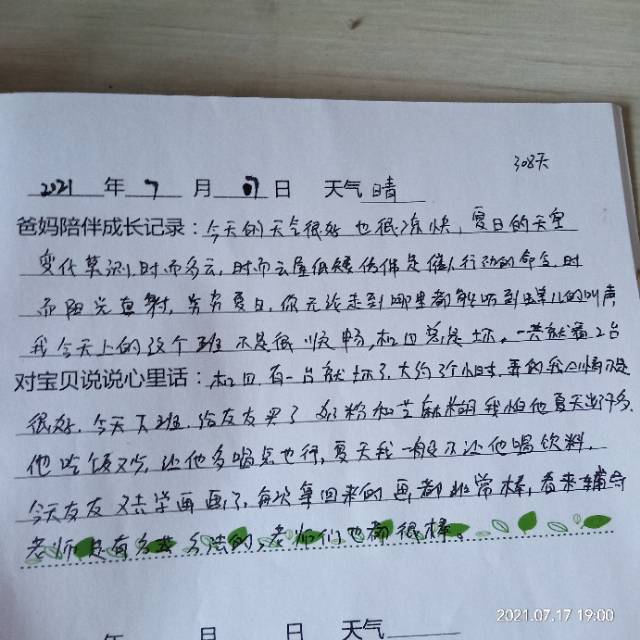 308天
2021年 7 月 日 天气 晴
爸妈陪伴成长记录：今天的天气很好 也很凉快，夏日的天空
变化莫测，时而多云，时而云层低矮仿佛是催人行动的命令，时
而阳光直射，炎炎夏日，你无论走到哪里都能听到 儿的叫声
我今天上的这个班不是很顺畅，机口总是坏，一共就 2台
对宝贝说说心里话：机口有一台就坏了，大约3个小时，弄的我心情不是
很好，今天下班，给友友买了 粉和芝麻糊我怕他夏天出汗多，
他吃饭又少，让他多喝点也行，夏天我一般不让他喝饮料，
今天友友又去学画画了，每次拿回来的画都非常棒，看来辅导
老师是有方法的，老师们也都很棒。
年 月 日 天气
2021.07.17 19:00